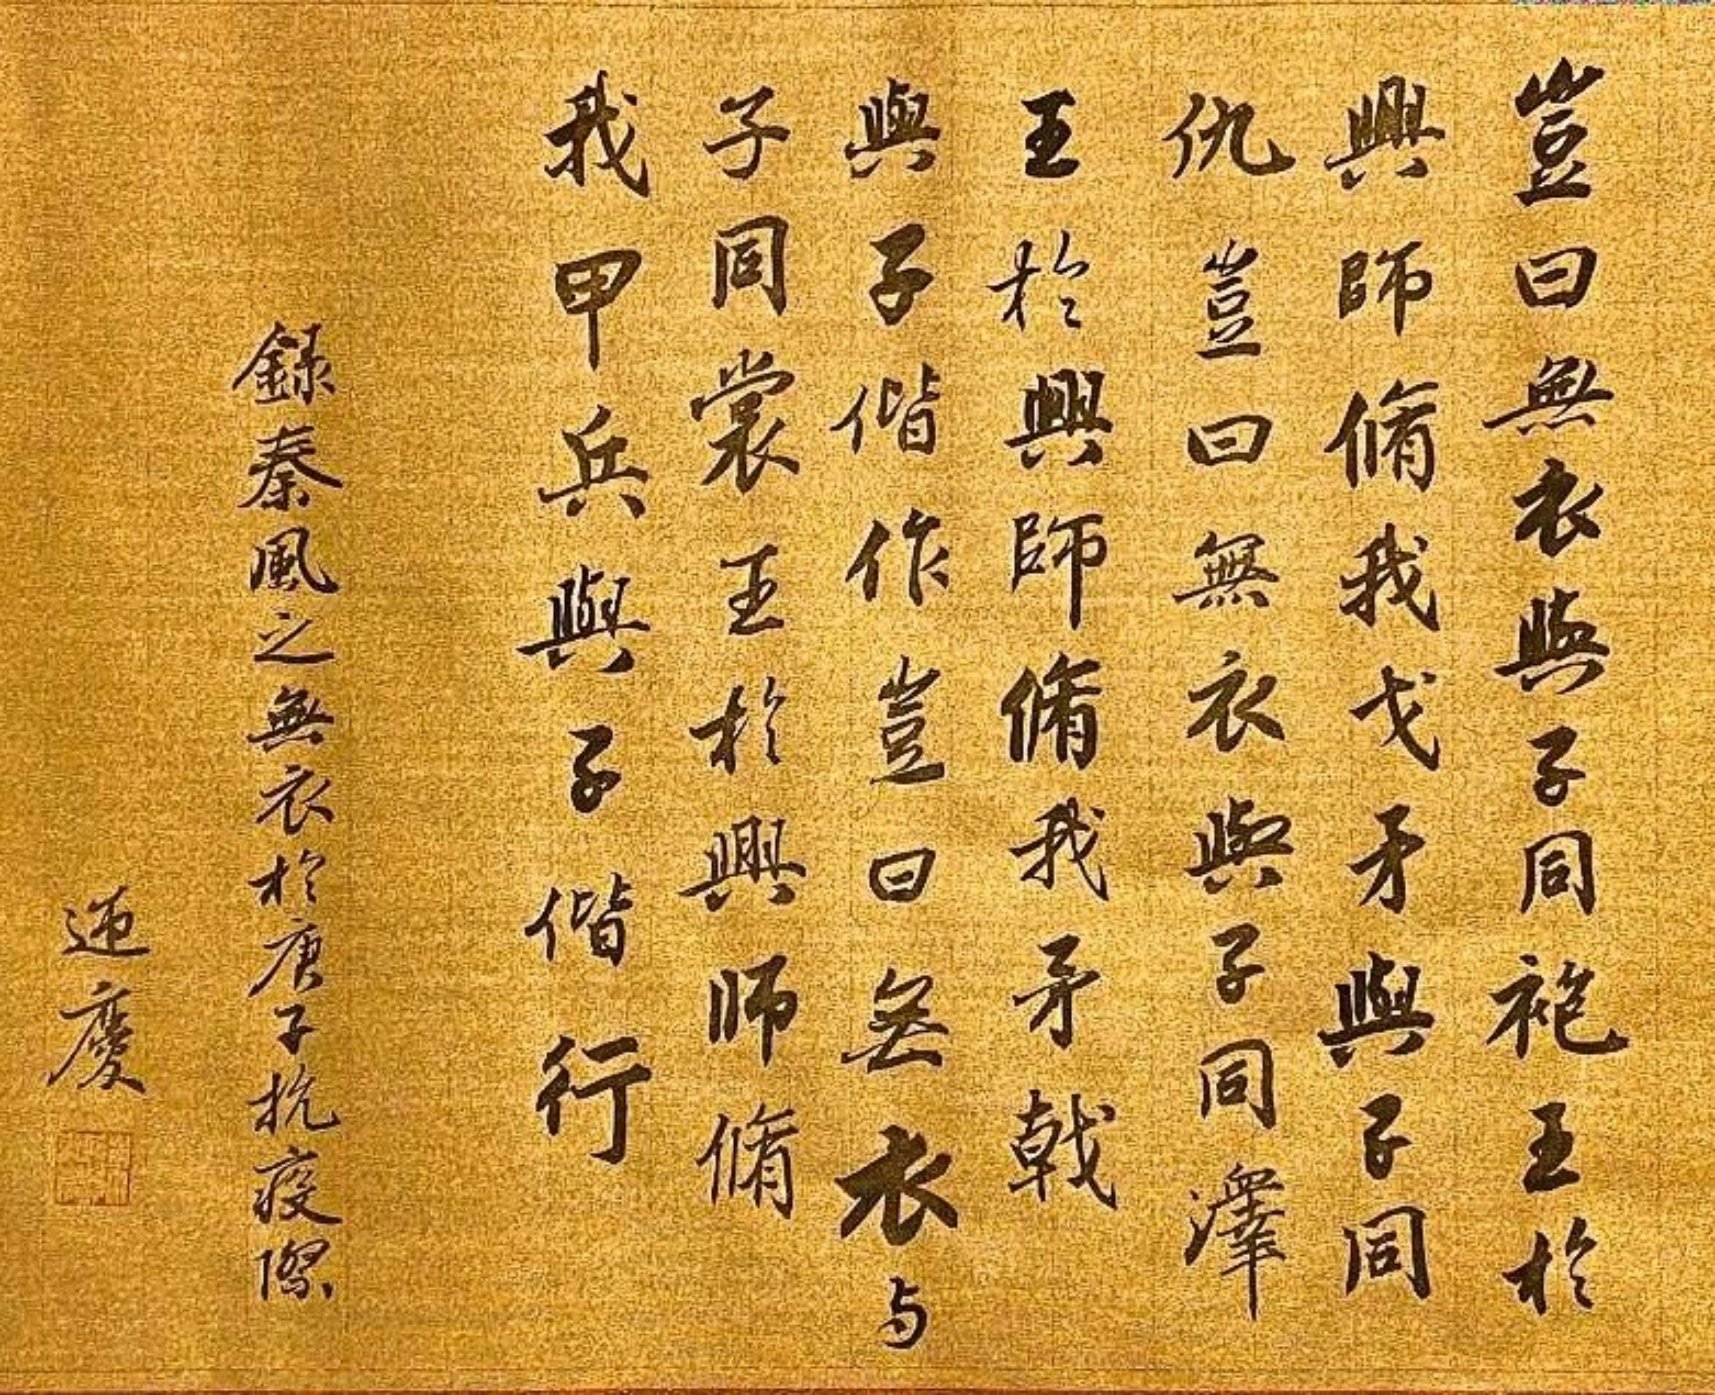 豈曰無衣與子同袍王於
興師脩我戈矛與子同
仇豈曰無衣與子同澤
王於興師脩我矛戟
與子偕作豈曰無衣与
子同裳王於興师脩
我甲兵與子偕行
錄秦風之無衣於庚子抗疫際
迊慶